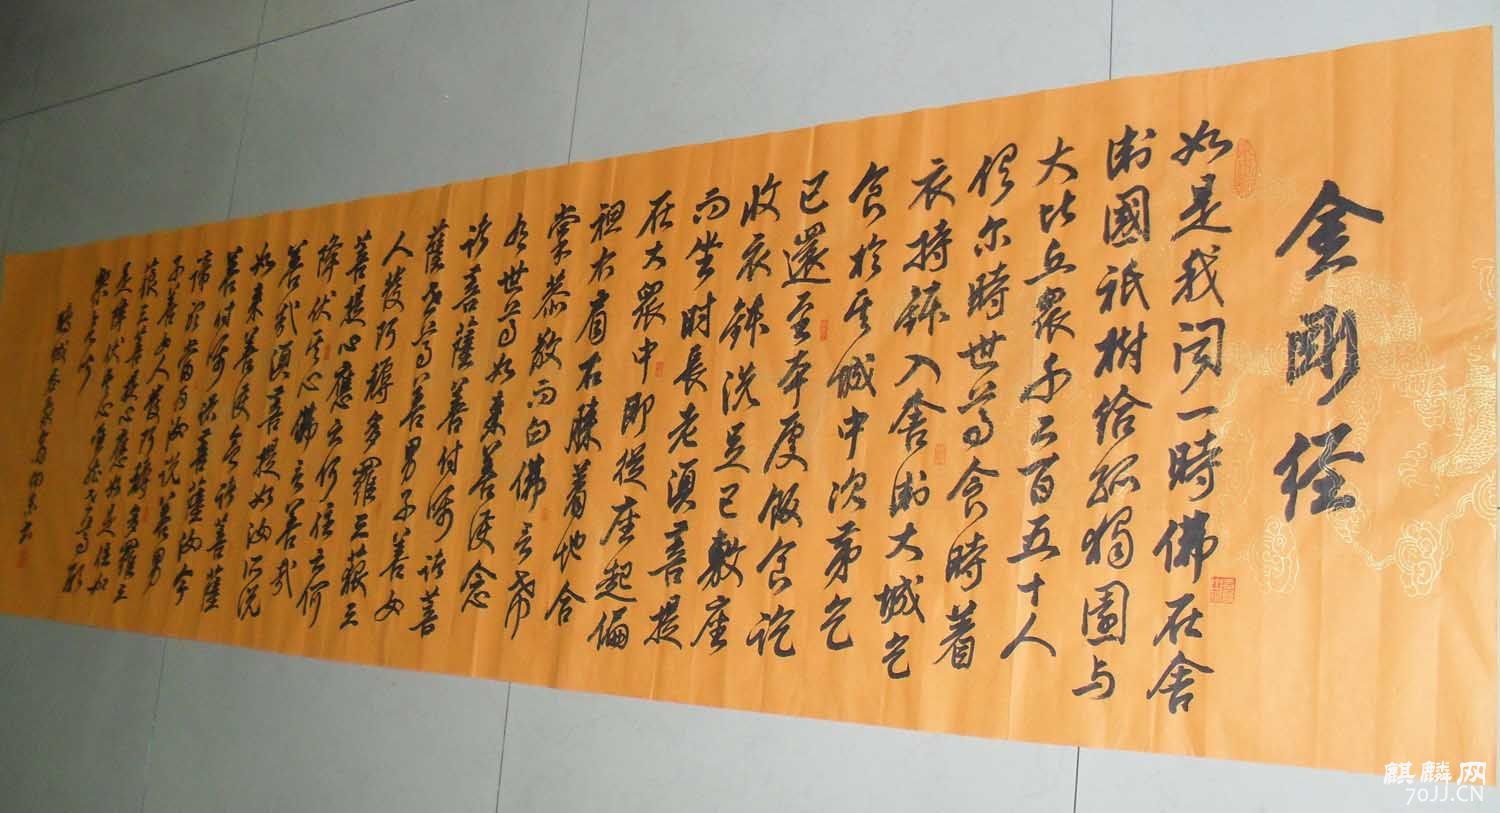 金剛经
如是我闻一時佛在舍
衛國祇樹给孤獨園与
大比丘眾千二百五十人
俱尔時世尊食時着
衣持鉢入舍衛大城乞
食於其城中次第乞
已還至本處飯食訖
收衣鉢洗足已敷座
而坐时長老須菩提
在大眾中即從座起偏
袒右肩右膝着地合
掌恭敬而白佛言希
有世尊如来善護念
诸菩薩善付嘱诸菩
薩世尊善男子善女
人發阿耨多羅三藐三
菩提心應云何住云何
降伏其心佛言善哉
善哉須菩提如汝所说
如来善護念诸菩薩
善付嘱诸菩薩汝今
谛聽當为汝说善男
子善女人發阿耨多羅三
藐三菩提心應如是住如
是降伏其心唯然世尊願
樂欲闻
麒麟网
70JJ.CN